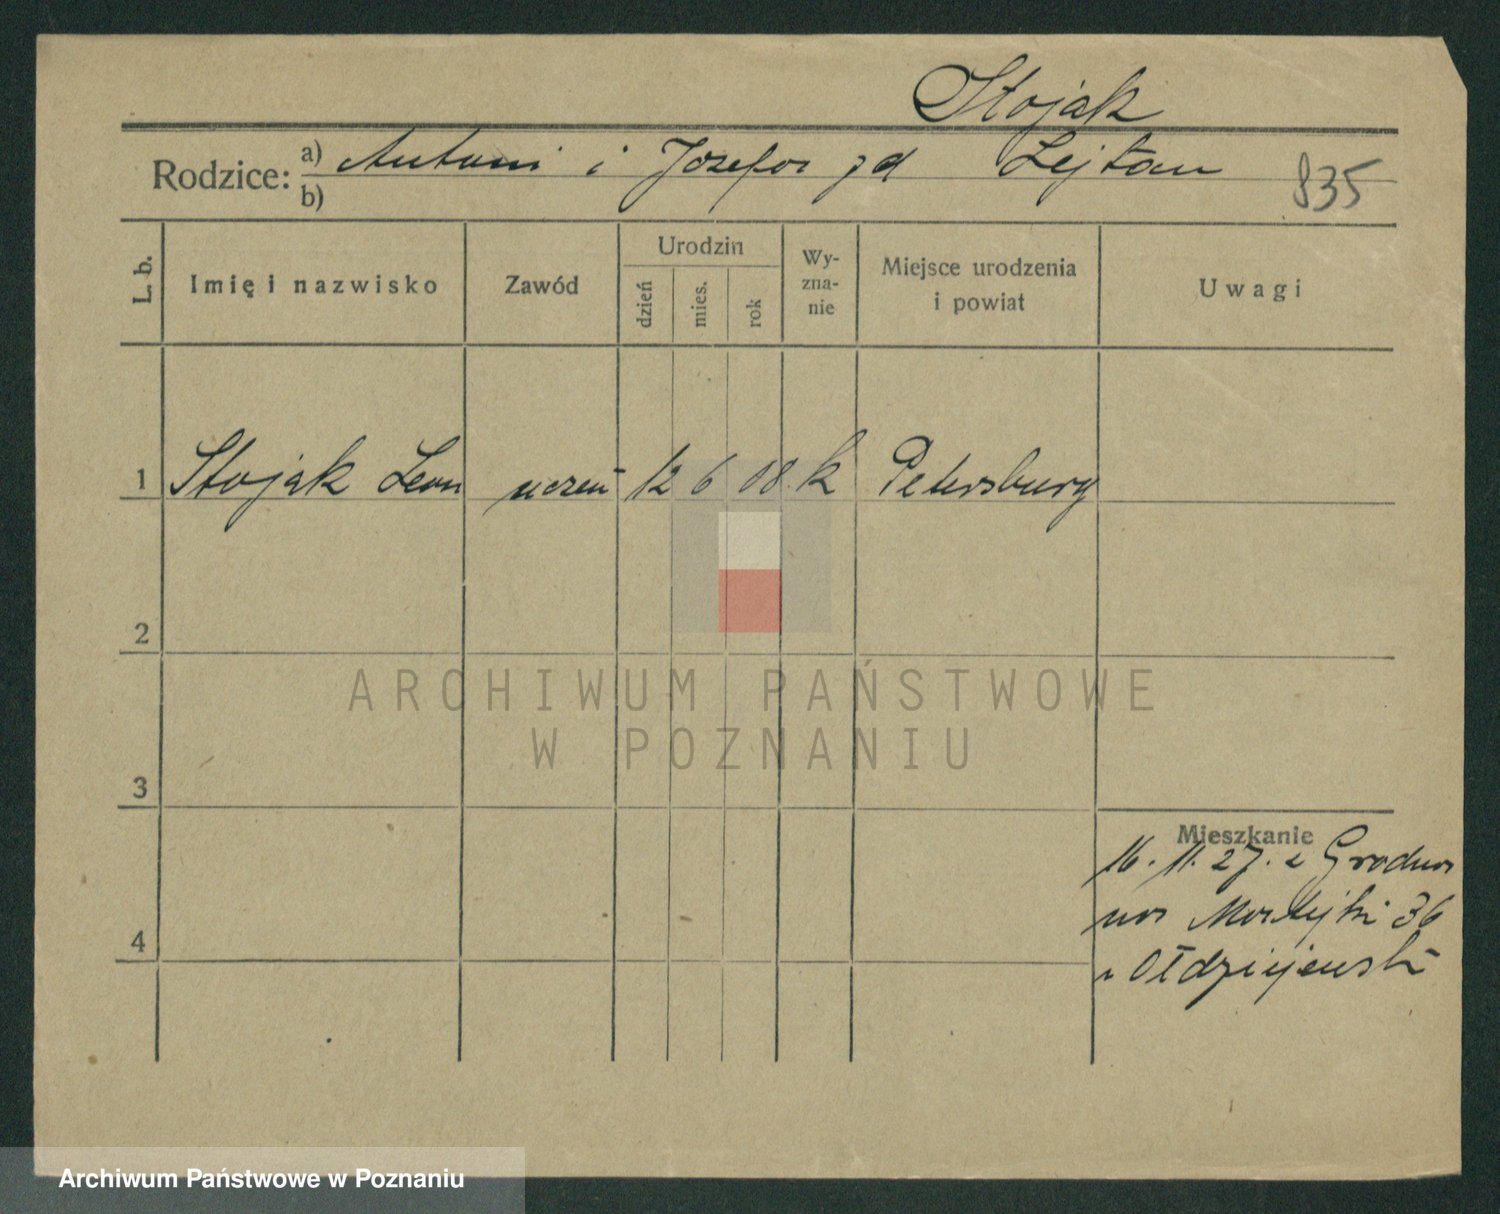 Stojak
Rodzice: a) Antoni i Józefa zd Lejtan
b)
835
L. b.
Imię i nazwisko
Zawód
Urodzin
dzień
mies.
rok
Wy-
zna-
nie
Miejsce urodzenia
i powiat
Uwagi
1 Stojak Leon uczeń 12 6 08. k Petersburg
2
3
4
Mieszkanie
16. 11. 27. z Grodna
na 36
ARCHIWUM PAŃSTWOWE
W POZNANIU
Archiwum Państwowe w Poznaniu